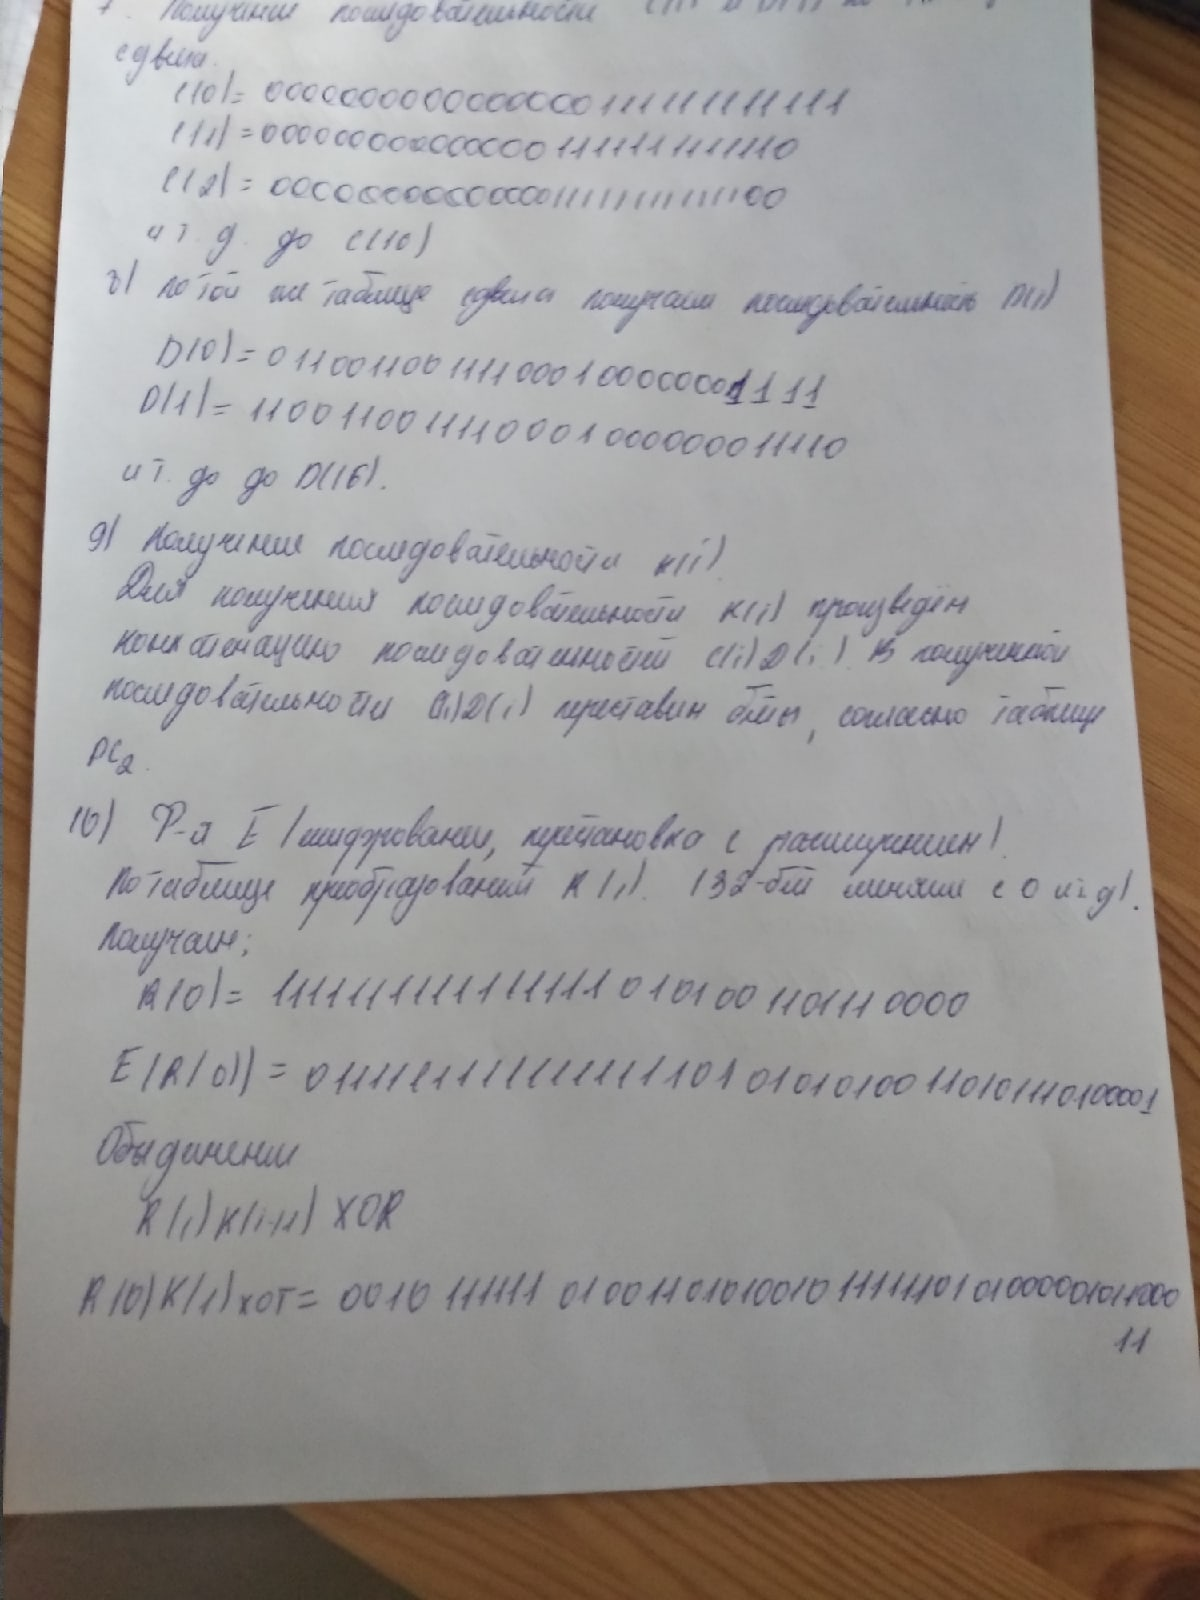 7. Получение последовательности C(i) и D(i) по
сдвига.
C(0)= 0000000000000000111111111111
C(1)=0000000000000001111111111110
C(2)= 0000000000000011111111111100
и т. д. до C(10)
8) по той же таблице сдвига получаем последовательность D(i)
D(0)= 0110011001111000100000001111
D(1)= 1100110011110001000000011110
и т. до до D(16).
9) Получение последовательности K(i)
Для получения последовательности K(i) произведём
конкатенацию последовательностей C(i)D(i). В полученной
последовательности C(i)D(i) переставим биты, согласно таблице
PC2.
10) Ф-я E (шифрования, перестановка с расширением).
По таблице преобразований R(i). (32-бит меняем с 0 и т д).
Получаем;
R(0)= 11111111111111111 010100 110111 0000
E(R(0)) = 01111111111111111101 01010100 110101110100001
Объединение
R(i)K(i+1) XOR
R(0)K(1) XOT= 0010 111111 01001101010010 1111110101000001011000
11